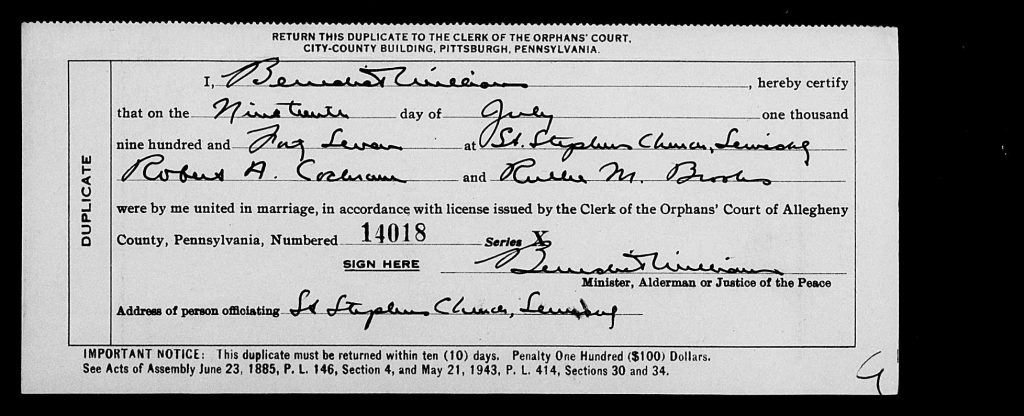 RETURN THIS DUPLICATE TO THE CLERK OF THE ORPHANS' COURT,
CITY-COUNTY BUILDING, PITTSBURGH, PENNSYLVANIA.
DUPLICATE
I, Benedict Williams, hereby certify
that on the Nineteenth day of July one thousand
nine hundred and Forty Seven at St. Stephens Church, Sewickley
Robert A. Cochrane and M. Brooks
were by me united in marriage, in accordance with license issued by the Clerk of the Orphans' Court of Allegheny
County, Pennsylvania, Numbered 14018 Series X
SIGN HERE Benedict Williams
Minister, Alderman or Justice of the Peace
Address of person officiating St Stephens Church, Sewickley
IMPORTANT NOTICE: This duplicate must be returned within ten (10) days. Penalty One Hundred ($100) Dollars.
See Acts of Assembly June 23, 1885, P. L. 146, Section 4, and May 21, 1943, P. L. 414, Sections 30 and 34.